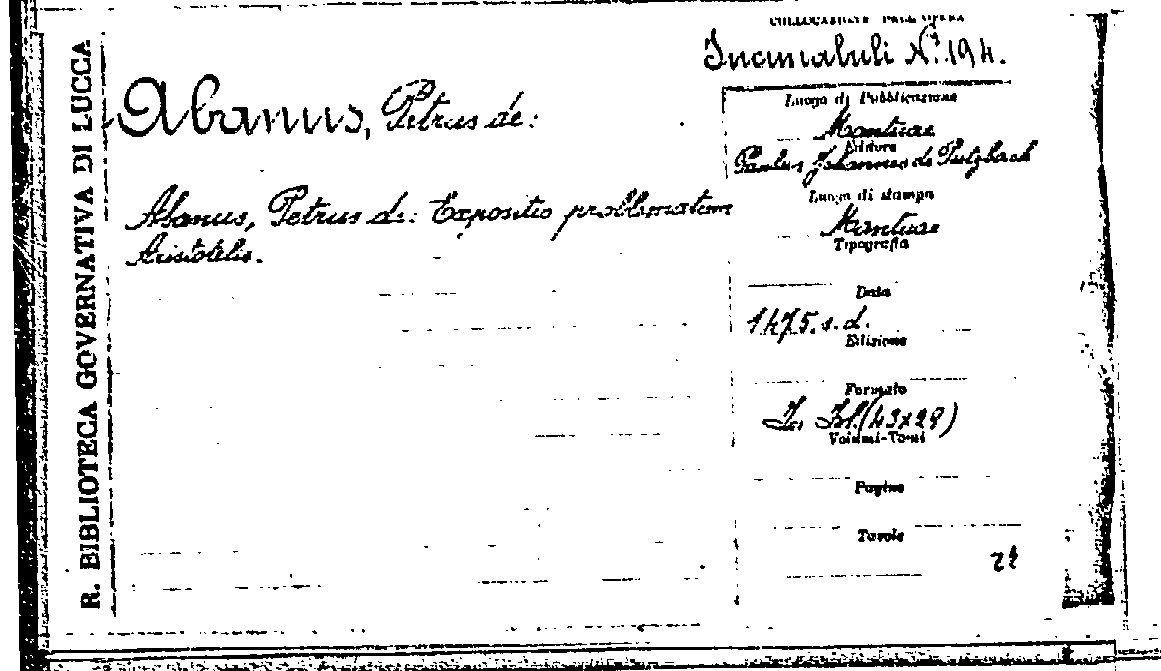 R. BIBLIOTECA GOVERNATIVA DI LUCCA
COLLOCAZIONE DELL'OPERA
Incunabuli N.º 194.
Abanus, Petrus de:
Abanus, Petrus de: Expositio problematum
Aristotelis.
Luogo di Pubblicazione
Mantuae
Editore
Paulus Johannes de Putzbach
Luogo di stampa
Mantuae
Tipografia
Data
1475. s. d.
Edizione
Formato
In fol. (43x29)
Volumi-Tomi
Pagine
Tavole